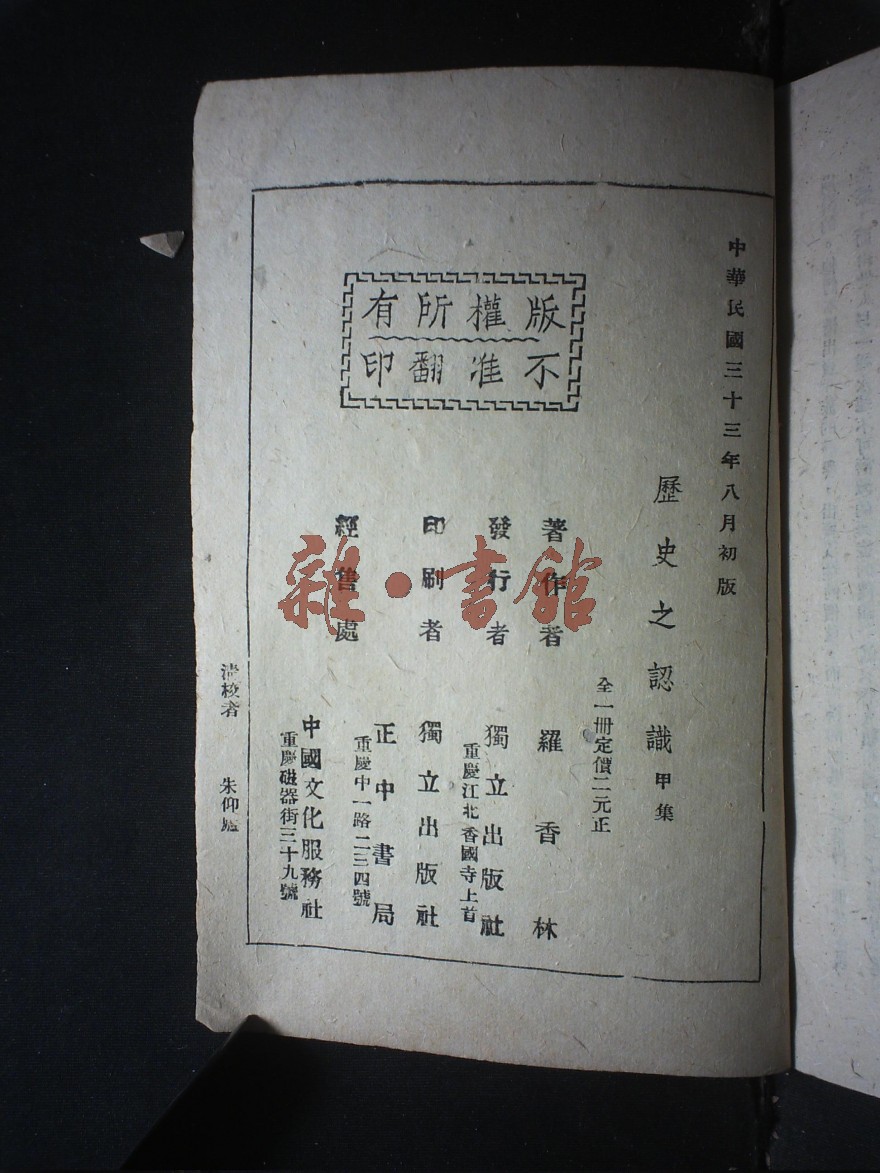 中華民國三十三年八月初版
歷史之認識 甲集
全一册定價二元正
版權所有
不准翻印
著作者 羅香林
發行者 獨立出版社
重慶江北香國寺上首
印刷者 獨立出版社
經售處 正中書局
重慶中一路二三四號
中國文化服務社
重慶磁器街三十九號
清校者 朱仰
雜·書館